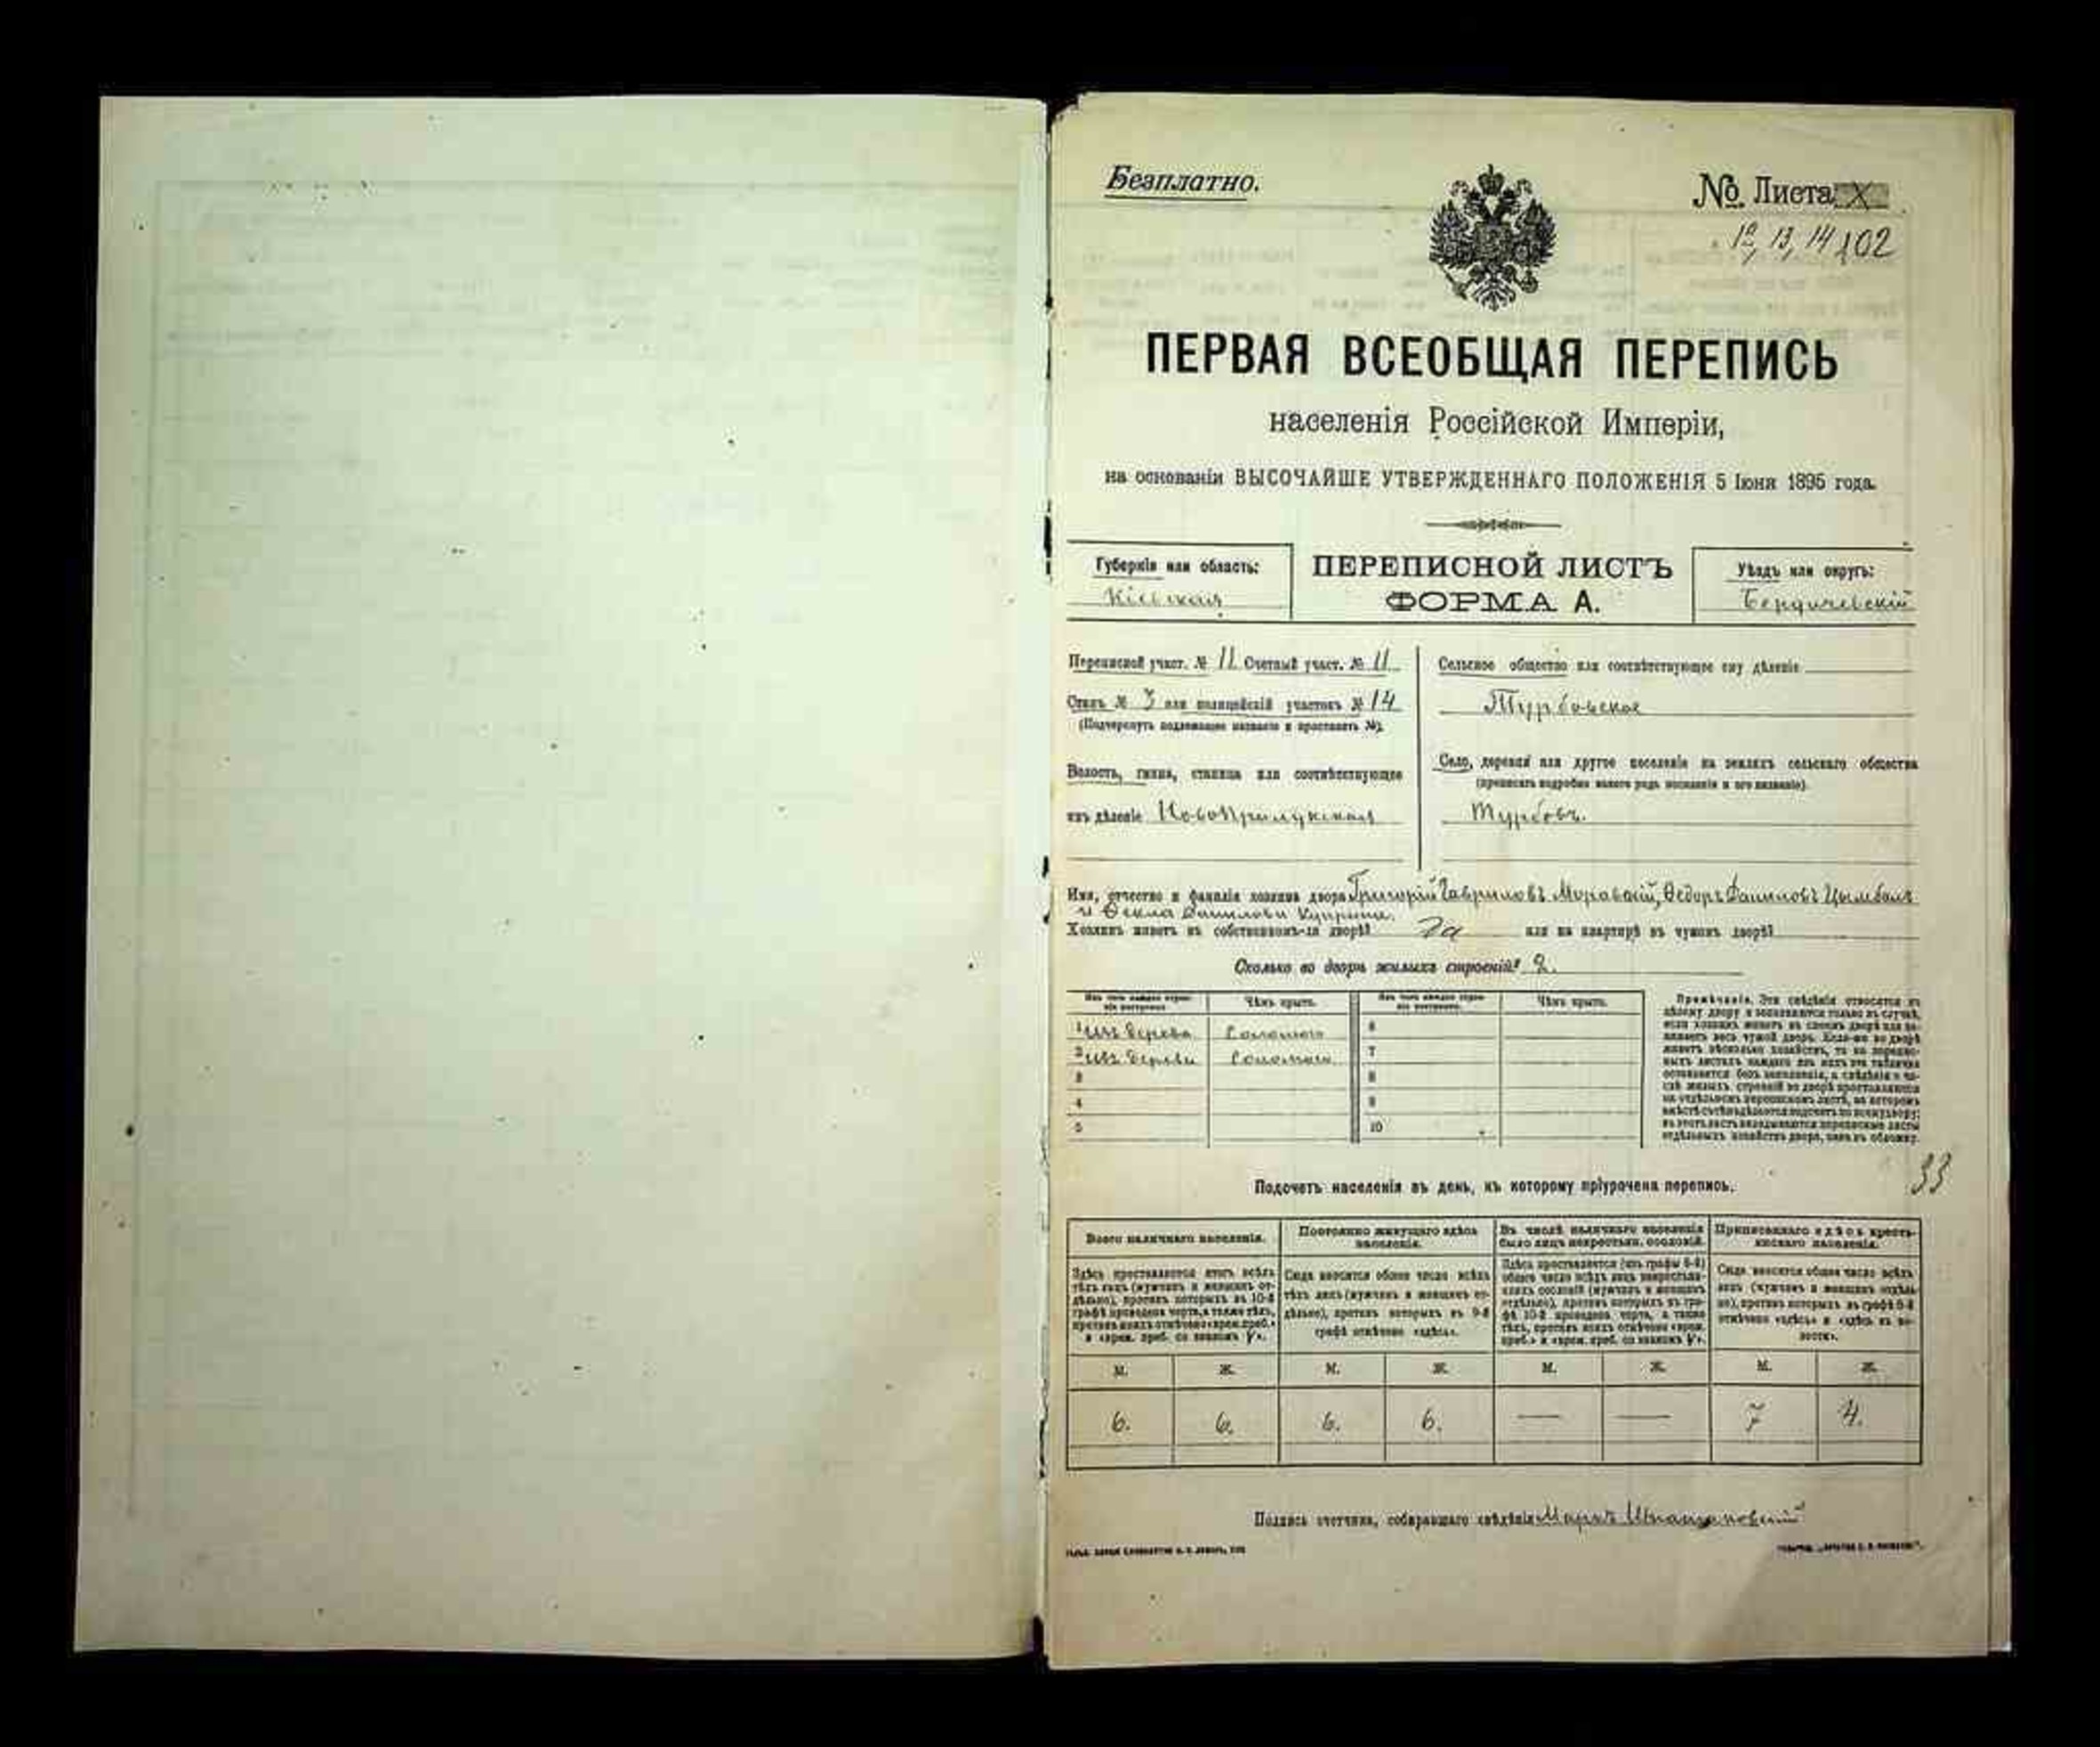 Безплатно.
№ Листа X
12, 13, 14 102
ПЕРВАЯ ВСЕОБЩАЯ ПЕРЕПИСЬ
населенія Россійской Имперіи,
на основаніи ВЫСОЧАЙШЕ УТВЕРЖДЕННАГО ПОЛОЖЕНІЯ 5 Іюня 1895 года.
Губернія или область:
Кіевская
ПЕРЕПИСНОЙ ЛИСТЪ
ФОРМА А.
Уѣздъ или округъ:
Бердичевскій
Переписной участ. № 11 Счетный участ. № 11
Станъ № 3 или полицейскій участокъ № 14
(Подчеркнуть подлежащее названіе и проставить №).
Волость, гмина, станица или соотвѣтствующее
имъ дѣленіе НовоПрилукская
Сельское общество или соотвѣтствующее ему дѣленіе
Турбовское
Село, деревня или другое поселеніе на земляхъ сельскаго общества
(прописать подробно какого рода поселеніе и его названіе).
Турбовъ.
Имя, отчество и фамилія хозяина двора Григорій Гавриловъ Моравскій, Ѳедоръ Даниловъ Цымбалъ
и Ѳекла Данилова
Хозяинъ живетъ въ собственномъ-ли дворѣ? да или на квартирѣ въ чужомъ дворѣ?
Сколько во дворѣ жилыхъ строеній? 2.
Изъ чего каждое строеніе построено. Чѣмъ крыто. Изъ чего каждое строеніе построено. Чѣмъ крыто.
1 изъ дерева Соломою 6
2 изъ дерева Соломою 7
3 8
4 9
5 10
Примѣчаніе. Эти свѣдѣнія относятся къ
цѣлому двору и заполняются только въ случаѣ,
если хозяинъ живетъ въ своемъ дворѣ или занимаетъ
весь чужой дворъ. Если-же во дворѣ
живетъ нѣсколько хозяйствъ, то на переписныхъ
листахъ каждаго изъ нихъ эта табличка
оставляется безъ заполненія, а свѣдѣнія о числѣ
жилыхъ строеній во дворѣ проставляются
на отдѣльномъ переписномъ листѣ, на которомъ
вмѣстѣ съ тѣмъ дѣлается подсчетъ по всему двору;
въ этотъ листъ вкладываются переписные листы
отдѣльныхъ хозяйствъ двора, какъ въ обложку.
33
Подсчетъ населенія въ день, къ которому пріурочена перепись.
Всего наличнаго населенія.
Постоянно живущаго здѣсь населенія.
Въ числѣ наличнаго населенія было лицъ некрестьян. сословій.
Приписаннаго здѣсь крестьянскаго населенія.
Здѣсь проставляется итогъ всѣхъ
тѣхъ лицъ (мужчинъ и женщинъ отдѣльно),
противъ которыхъ въ 10-й
графѣ проведена черта, а также тѣхъ,
противъ коихъ отмѣчено «врем. преб.»
и «врем. преб. со знакомъ V».
Сюда вносится общее число всѣхъ
тѣхъ лицъ (мужчинъ и женщинъ отдѣльно),
противъ которыхъ въ 9-й
графѣ отмѣчено «здѣсь».
Здѣсь проставляется (изъ графы 6-й)
общее число всѣхъ лицъ некрестьянскихъ
сословій (мужчинъ и женщинъ
отдѣльно), противъ которыхъ въ графѣ
10-й проведена черта, а также
тѣхъ, противъ коихъ отмѣчено «врем.
преб.» и «врем. преб. со знакомъ V».
Сюда вносится общее число всѣхъ
лицъ (мужчинъ и женщинъ отдѣльно),
противъ которыхъ въ графѣ 8-й
отмѣчено «здѣсь» и «здѣсь въ волости».
М. Ж. М. Ж. М. Ж. М. Ж.
6. 6. 6. 6. — — 7 4.
Подпись счетчика, собиравшаго свѣдѣнія Маркъ